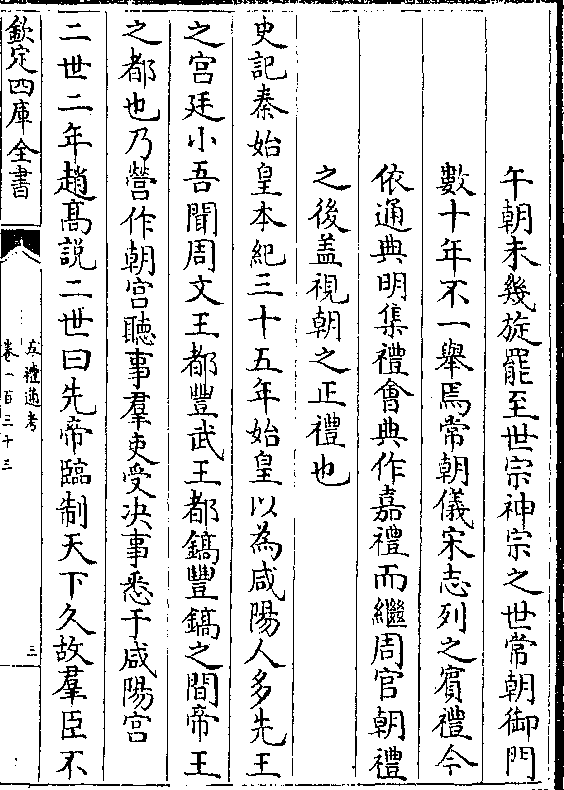 午朝未幾旋罷至世宗神宗之世常朝御門
數十年不一舉焉常朝儀宋志列之賓禮今
依通典明集禮會典作嘉禮而繼周官朝禮
之後蓋視朝之正禮也
史記秦始皇本紀三十五年始皇以為咸陽人多先王
之宫廷小吾聞周文王都豐武王都鎬豐鎬之間帝王
之都也乃營作朝宫聽事羣吏受决事悉于咸陽宫
二世二年趙髙説二世曰先帝臨制天下久故羣臣不
欽定四庫全書
五禮通考
卷一百三十三
三